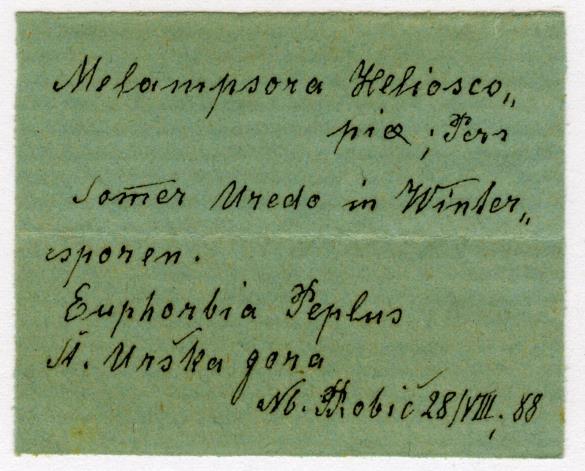 Melampsora Heliosco„
piæ ; Pers
Som̅er Uredo in Winter„
sporen.
Euphorbia Peplus
Št. Urška gora
Robič 28/VIII. 88